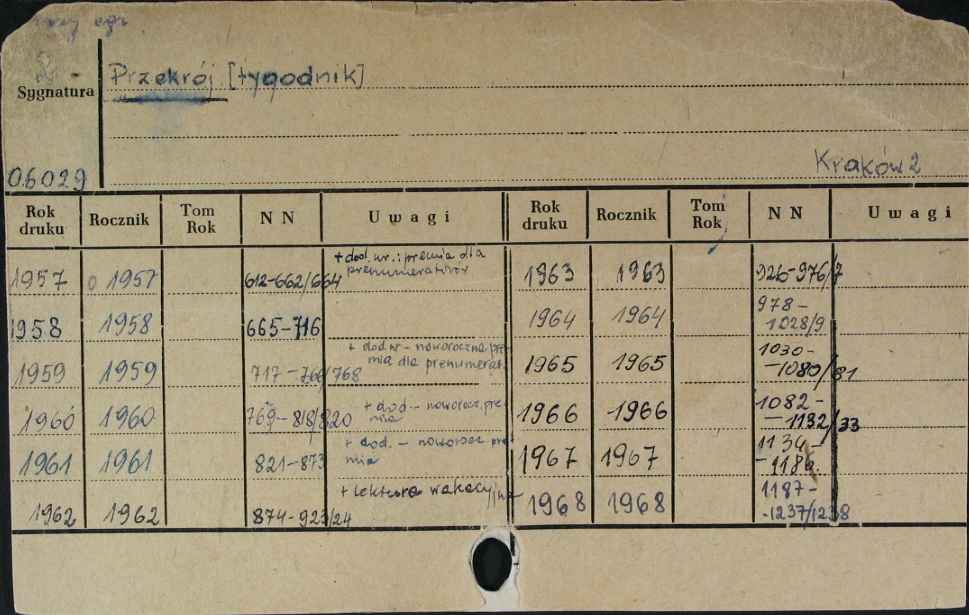 Przekrój [tygodnik]
Sygnatura
Kraków 2
06029
Rok druku Rocznik Tom Rok NN Uwagi Rok druku Rocznik Tom Rok NN Uwagi
1957 1957 612-662/664 + dod. nr.: premia dla prenumeratorów 1963 1963 926-976/7
1958 1958 665-716 1964 1964 978-1028/9
1959 1959 717-766/768 + dod. - noworoczna premia dla prenumerat. 1965 1965 1030-1080/81
1960 1960 769-818/820 + dod - noworocz. premia 1966 1966 1082-1132/33
1961 1961 821-873 + dod. - noworocz premia 1967 1967 1134-1186
1962 1962 874-923/24 + lektura 1968 1968 1187-1237/1238